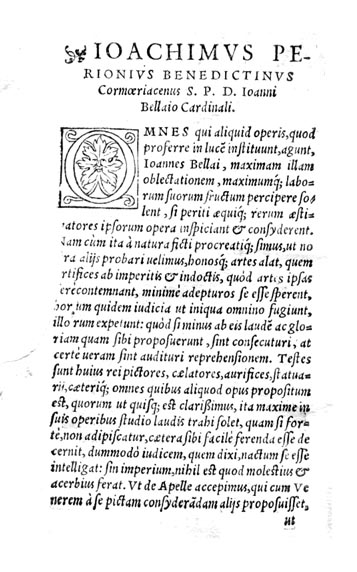 IOACHIMVS PE-
RIONIVS BENEDICTINVS
Cormœriacenus S. P. D. Ioanni
Bellaio Cardinali.
OMNES qui aliquid operis, quod
proferre in lucē instituunt, agunt,
Ioannes Bellai, maximam illam
oblectationem, maximumq́; labo-
rum suorum fructum percipere so-
lent, si periti æquiq́; rerum æsti-
matores ipsorum opera inspiciant & consyderent.
Nam cùm ita à natura ficti procreatiq́; simus, ut no
ra alijs probari uelimus, honosq́; artes alat, quem
rtifices ab imperitis & indoctis, quòd artes ipsas
ferè contemnant, minimè adepturos se esse sperent,
horum quidem iudicia ut iniqua omnino fugiunt,
illorum expetunt: quòd si minus ab eis laudē ac glo-
riam quam sibi proposuerunt, sint consecuturi, at
certè ueram sint audituri reprehensionem. Testes
sunt huius rei pictores, cælatores, aurifices, statua-
rij, cæteriq́; omnes quibus aliquod opus propositum
est, quorum ut quisq; est clarißimus, ita maxime in
suis operibus studio laudis trahi solet, quam si for-
tè, non adipiscatur, cætera sibi facilè ferenda esse de
cernit, dummodò iudicem, quem dixi, nactum se esse
intelligat: sin imperium, nihil est quod molestius &
acerbius ferat. Vt de Apelle accepimus, qui cum Ve
nerem à se pictam consyderādam alijs proposuisset,
ut